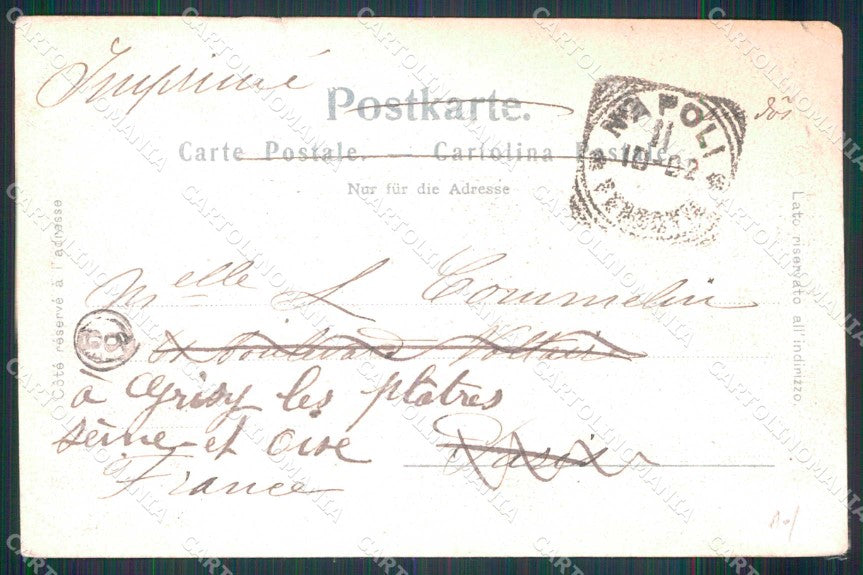 Imprimé
Postkarte.
Carte Postale. — Cartolina Postale.
Nur für die Adresse
NAPOLI
11
10-02
Côté réservé à l'adresse
Lato riservato all'indirizzo.
Melle L Commelin
Boulevard Voltaire
à Grisy les plâtres
seine-et oise
Paris
France
CARTOLINOMANIA